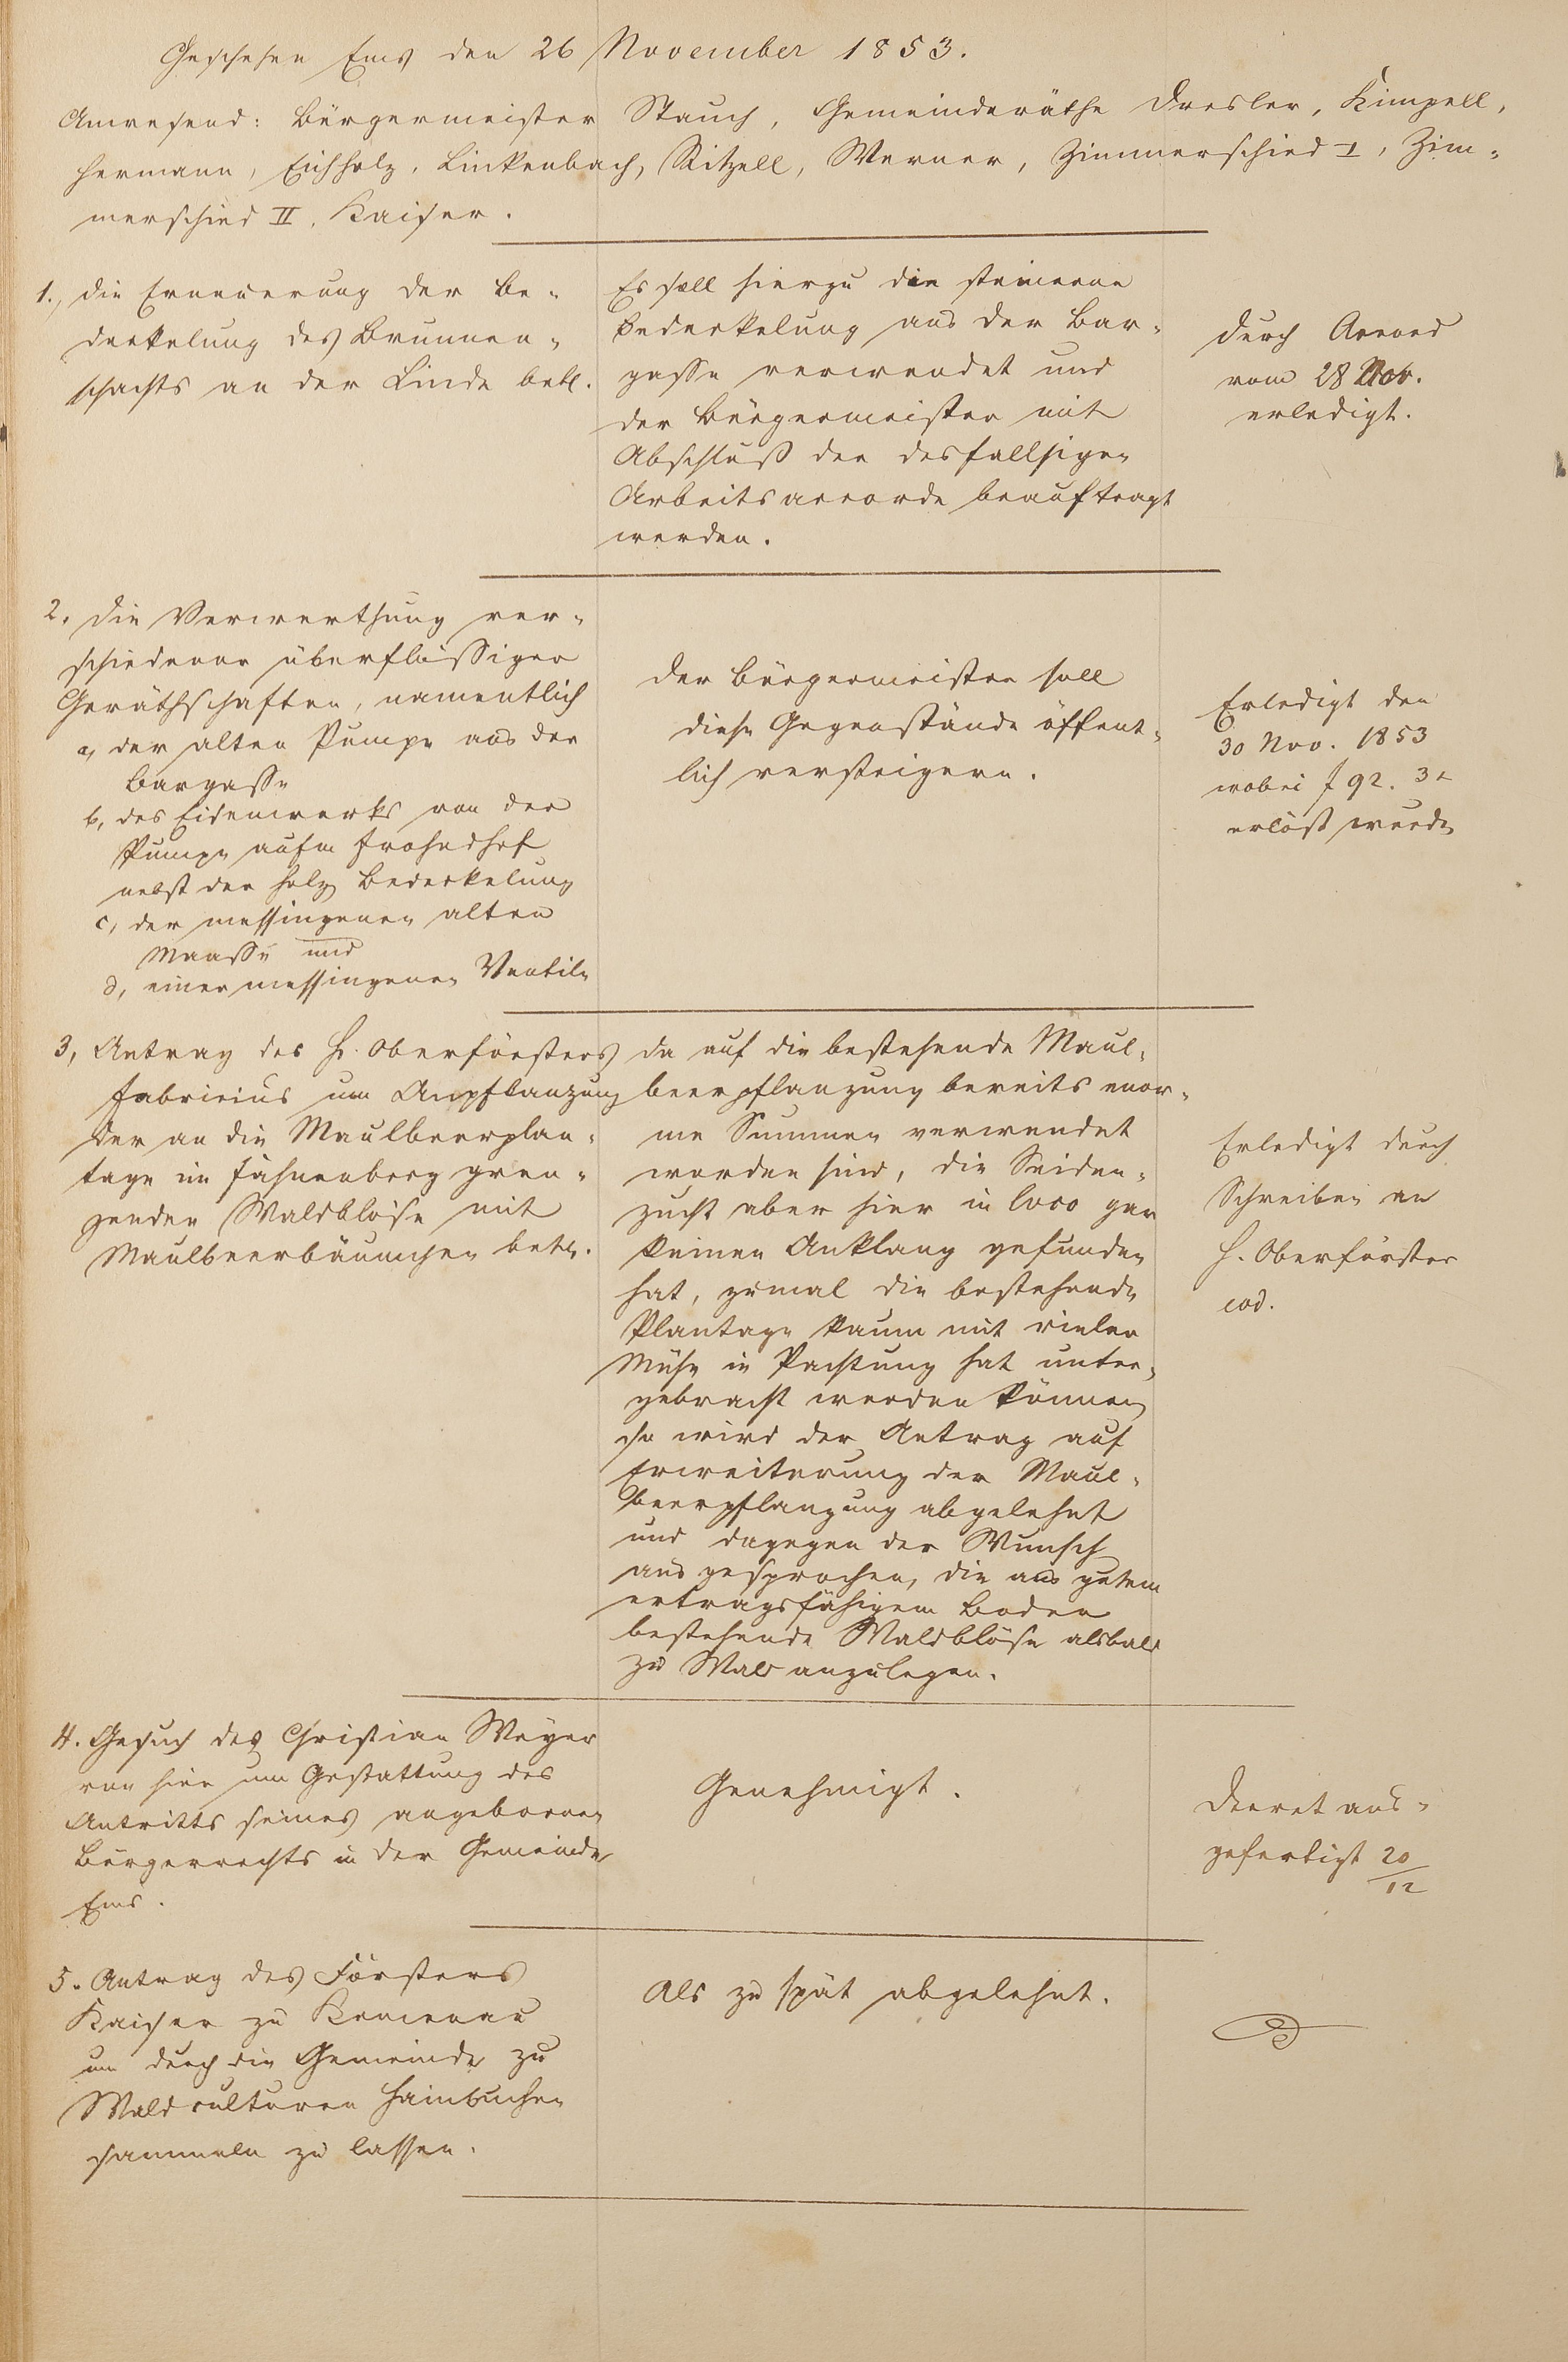 Geschehen Ems den 26 November 1853.
Anwesend: Bürgermeister Stauch, Gemeinderäthe Dresler, Kimpell,
Hermann, Eichholz, Linkenbach, Ritzell, Werner, Zimmerschied I, Zim-
merschied II, Kaiser.
1., die Erneuerung der Be-
deckelung des Brunnen-
schachts an der Linde betr.
Es soll hierzu die steinerne
Bedeckelung aus der Bar-
gasse verwendet und
der Bürgermeister mit
Abschluß der desfallsigen
Arbeitsaccorde beauftragt
werden.
durch Accord
vom 28 Nov.
erledigt.
2. die Verwerthung ver-
schiedener überflüssiger
Geräthschaften, namentlich
a, der alten Pumpe aus der
Bargasse
b, des Eisenwerks von der
Pumpe aufm Frohnhof
nebst der Holz Bedeckelung
c, der messingenen alten
Maasse und
d, einer messingenen Ventile
der Bürgermeister soll
diese Gegenstände öffent-
lich versteigern.
Erledigt den
30 Nov. 1853
wobei f 92. 3x
erlößt wurde
3, Antrag des H. Oberförsters
Fabricius um Anpflanzung
der an die Maulbeerplan-
tage im Fahnenberg gren-
zenden Waldblöse mit
Maulbeerbäumchen betr.
da auf die bestehende Maul-
beerpflanzung bereits enor-
me Summen verwendet
worden sind, die Seiden-
zucht aber hier in loco gar
keinen Anklang gefunden
hat, zumal die bestehende
Plantage kaum mit vieler
Mühe in Pachtung hat unter-
gebracht werden können
so wird der Antrag auf
Erweiterung der Maul-
beerpflanzung abgelehnt
und dagegen der Wunsch
ausgesprochen, die aus gutem
ertragsfähigem Boden
bestehende Waldblöse alsbald
zu Wald anzulegen.
Erledigt durch
Schreiben an
H. Oberförster
eod.
4. Gesuch des Christian Meyer
von hier um Gestattung des
Antritts seines angebornen
Bürgerrechts in der Gemeinde
Ems.
Genehmigt.
Decret aus-
gefertigt 20/12
5. Antrag des Försters
Kaiser zu Kemenau
um durch die Gemeinde zu
Waldculturen Hainbuchen
sammeln zu lassen.
Als zu spät abgelehnt.